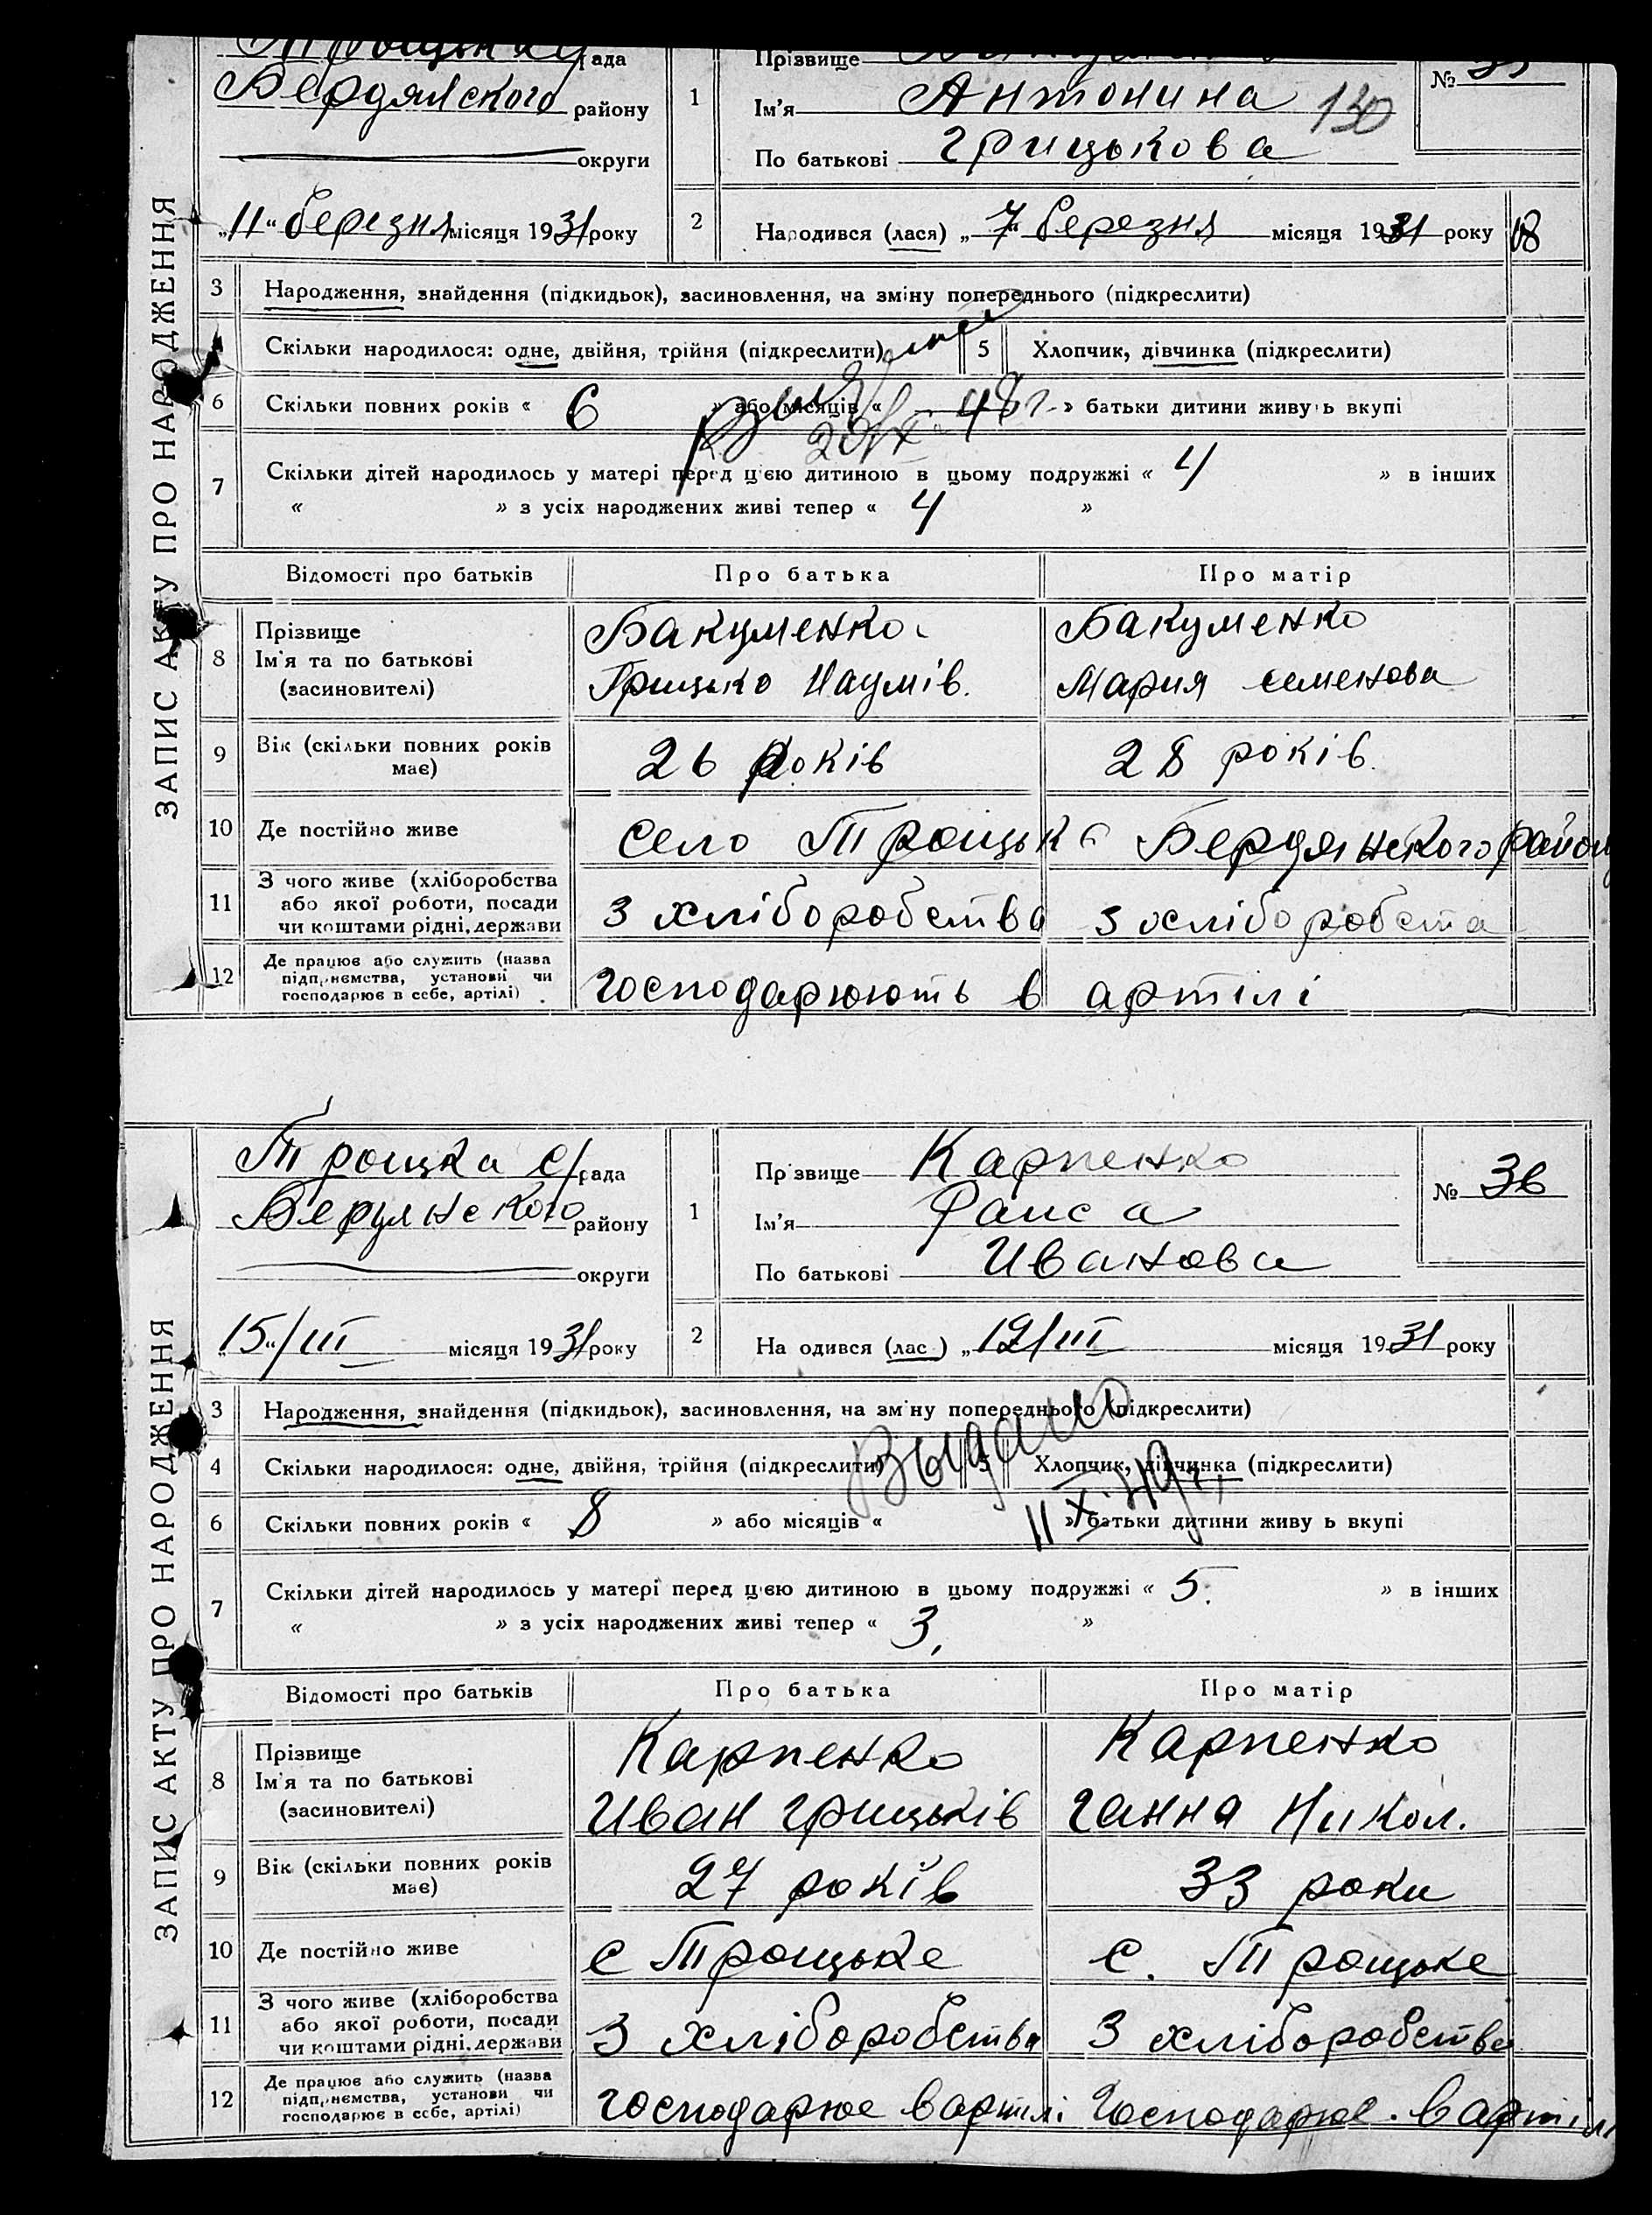 ЗАПИС АКТУ ПРО НАРОДЖЕННЯ
рада
Бердянского району
округи
„11“ березня місяця 1931 року
1
Прізвище
Ім'я Антонина
По батькові Грицькова
130
№ 35
2 Народився (лася) „7“ березня місяця 1931 року
3 Народження, знайдення (підкидьок), засиновлення, на зміну попереднього (підкреслити)
4 Скільки народилося: одне, двійня, трійня (підкреслити)
5 Хлопчик, дівчинка (підкреслити)
6 Скільки повних років « 6 » або місяців « » батьки дитини живу ь вкупі
7 Скільки дітей народилось у матері перед цією дитиною в цьому подружжі « 4 » в інших
« » з усіх народжених живі тепер « 4 »
Відомості про батьків Про батька Про матір
8 Прізвище Бакуменко Бакуменко
Ім'я та по батькові Грицько Наумів. Мария Семенова
(засиновителі)
9 Вік (скільки повних років має) 26 років 28 років.
10 Де постійно живе село Троцьке Бердянского району
11 З чого живе (хліборобства
або якої роботи, посади
чи коштами рідні, держави
з хліборобства з хлібо робста
12 Де працює або служить (назва
підприємства, установи чи
господарює в себе, артілі)
господарюють в артілі
ЗАПИС АКТУ ПРО НАРОДЖЕННЯ
Троцка с/рада
Бердянского району
округи
„15“/III місяця 1931 року
1
Пр звище Карпенко
Ім'я Раиса
По батькові Иванова
№ 36
2 На одився (лас ) „12/III місяця 1931 року
3 Народження, знайдення (підкидьок), засиновлення, на зм ну попереднього (підкреслити)
4 Скільки народилося: одне, двійня, трійня (підкреслити)
5 Хлопчик, дівчинка (підкреслити)
Выдано
11 X. 49 г.
6 Скільки повних років « 8 » або місяців « » батьки дитини живу ь вкупі
7 Скільки дітей народилось у матері перед цією дитиною в цьому подружжі « 5. » в інших
« » з усіх народжених живі тепер « 3, »
Відомості про батьків Про батька Про матір
8 Прізвище Карпенко Карпенко
Ім'я та по батькові Иван Грицьків Ганна Никол.
(засиновителі)
9 Вік (скільки повних років має) 27 років 33 роки
10 Де постійно живе с Троцьке с. Троцьке
11 З чого живе (хліборобства
або якої роботи, посади
чи коштами рідні, держави
З хліборобства З хліборобства
12 Де працює або служить (назва
підприємства, установи чи
господарює в себе, артілі)
господарює в артілі Господарює. в артілі